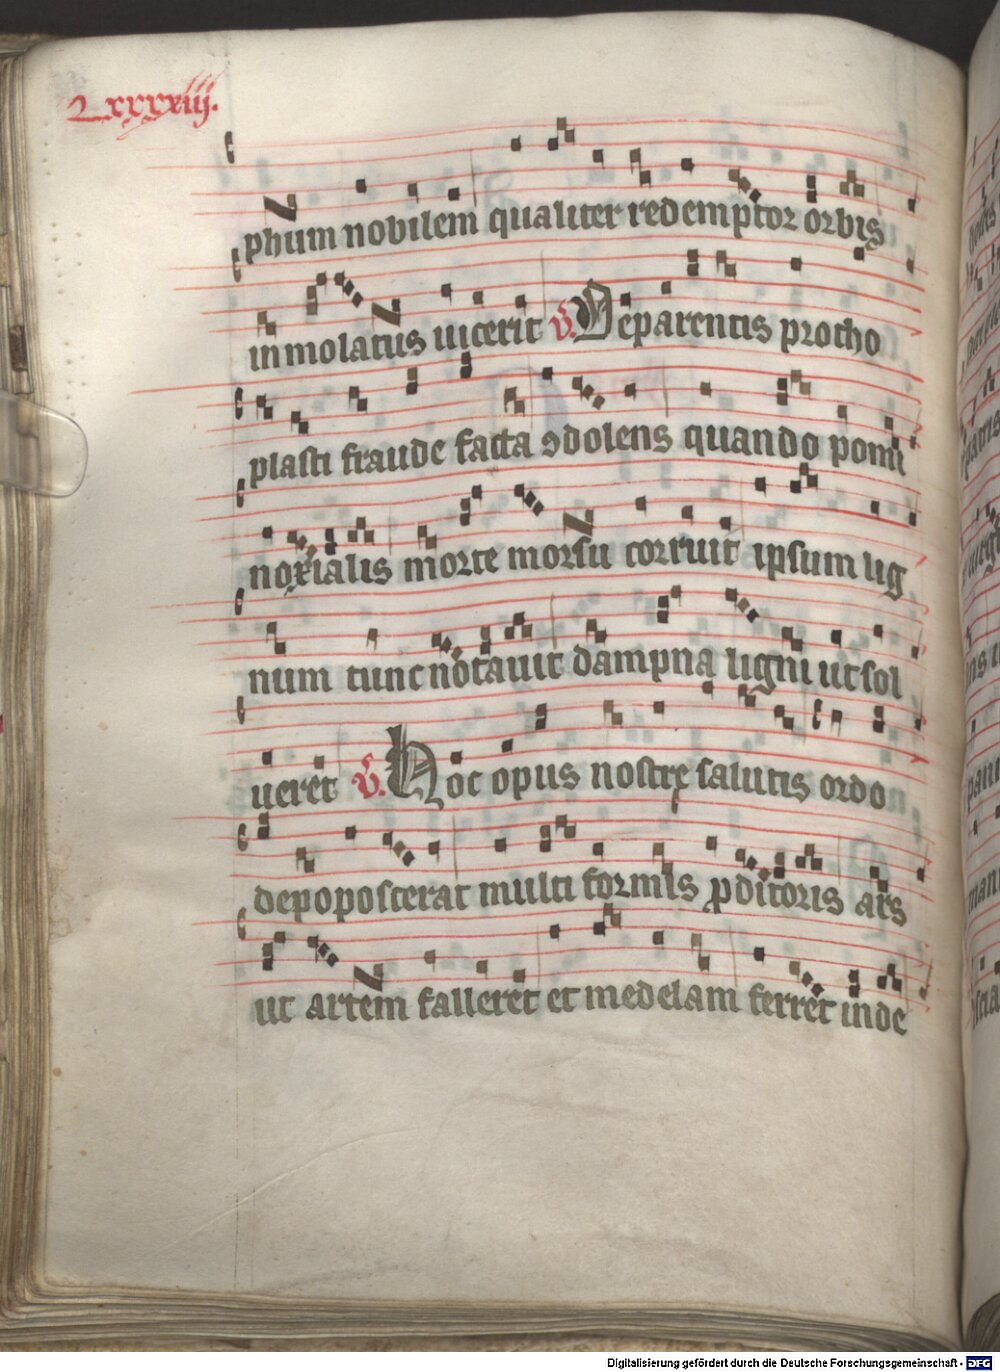 Lxxxxiij.
phum nobilem qualiter redemptor orbis
inmolatus uicerit V. De parentis protho
plasti fraude facta ꝯdolens quando pomi
noxialis morte morsu corruit ipsum lig
num tunc notauit dampna ligni ut sol
ueret V. Hoc opus nostrę salutis ordo
depoposcerat multi formis ꝓditoris ars
ut artem falleret et medelam ferret inde
Digitalisierung gefördert durch die Deutsche Forschungsgemeinschaft - DFG